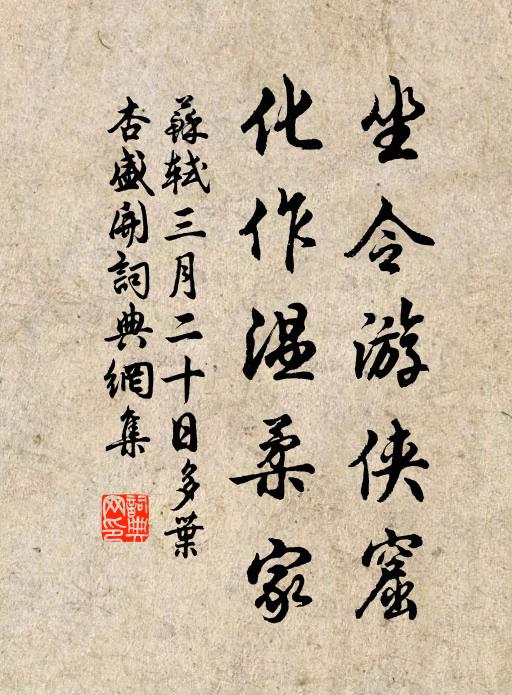 坐令游侠窟
化作温柔家
蘇軾三月二十日多葉
杏盛開詞典網集
詞典
网印